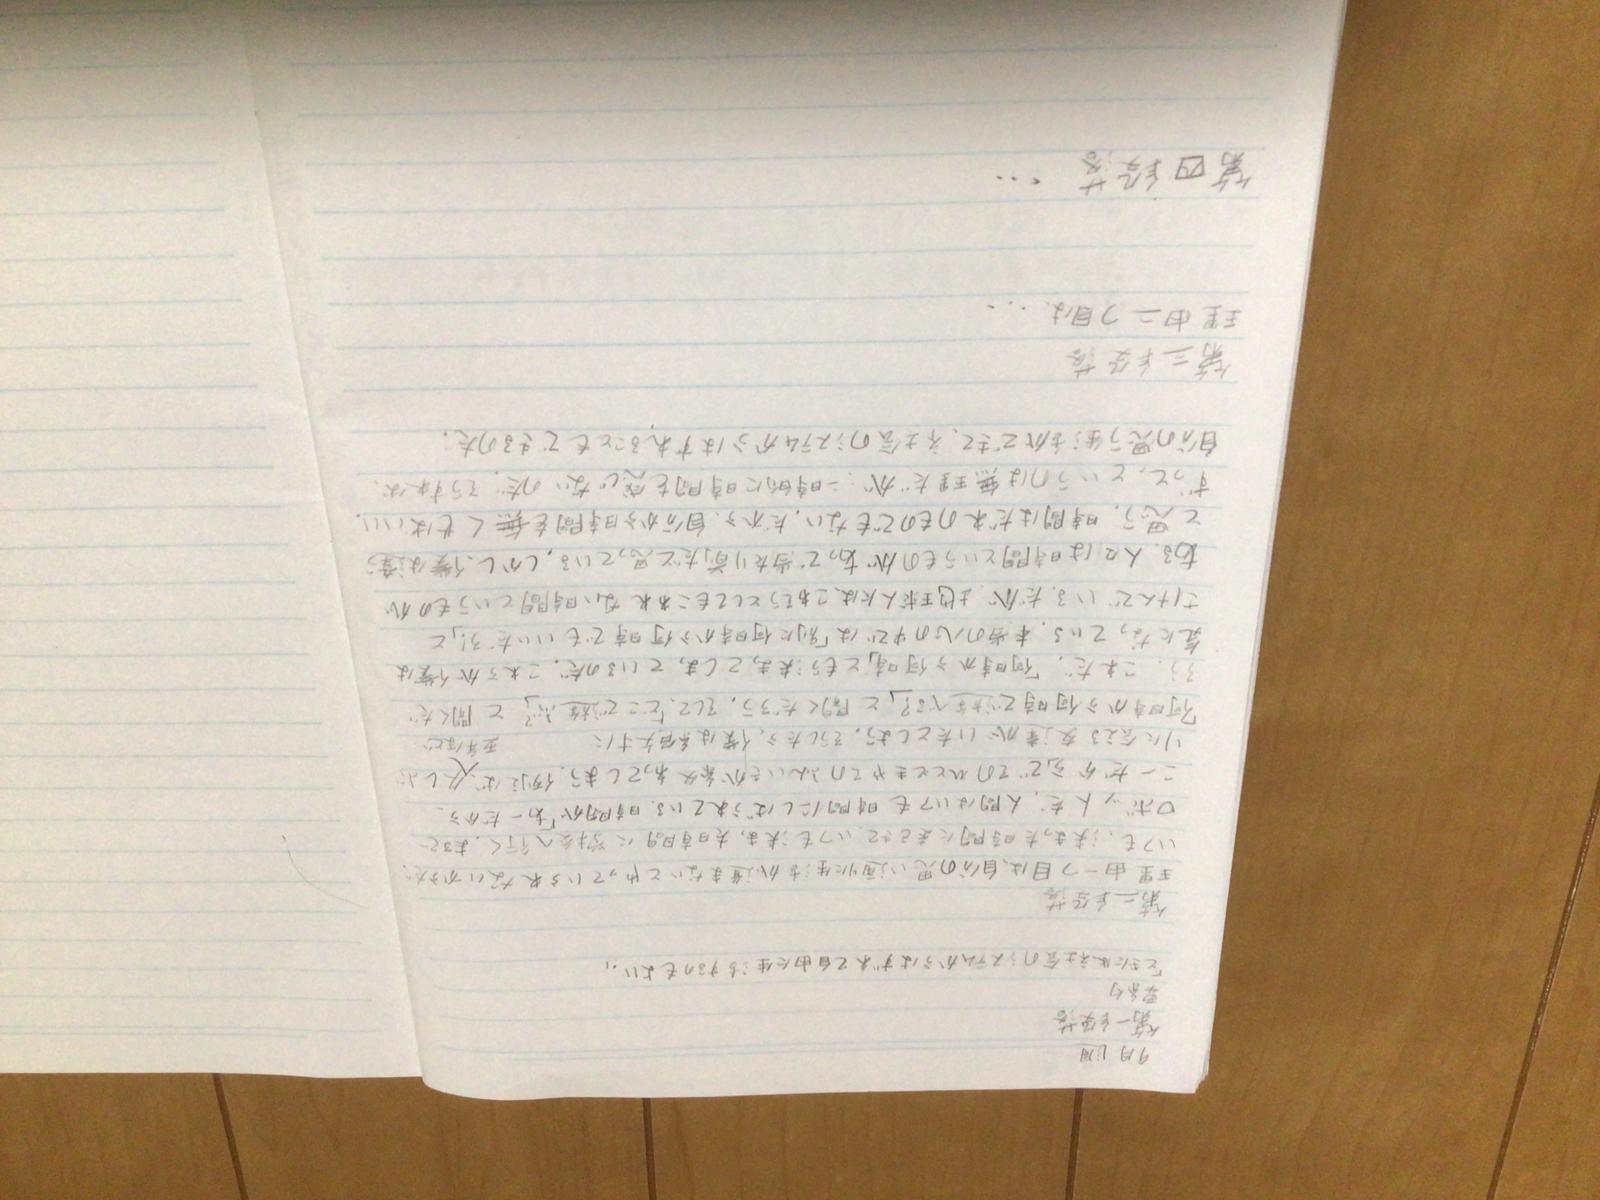 9月1週
第一段落
要約
「ときには社会のシステムからはずれて自由な生活するのもよい。」
第二段落
理由一つ目は、自分の思い通りに生活が進まないとやっていられないからだ。
いつも、決まった時間に起きて、いつも決まった時間に学校へ行く。まるで
ロボットだ。人間はいつも時間にしばられている。時間が「あーだから、
こーだから」でそのひとときやその
りに会える友達がいたとしよう。そしたら、僕は絶対に
何時から何時まで遊べる?」と聞くだろう。そして、「どこで遊ぶ?」と聞くだ
ろう。これだ。「何時から何時」ともう決まってしまっているのだ。これでは僕は
気になっている。本当の心の中では「別に何時から何時でもいいだろ!」と
さけんでいる。だが、地球人にはこわそうとしてもこわれない時間というものが
ある。人々は時間というものがあって当たり前だと思っている。しかし、僕は違う
と思う。時間はだれのものでもない。だから、自分から時間を無くせばいい。
ずっと、というのは無理だが、一時的に時間を感じないのだ。そうすれば、
自分の思う生活ができて、社会のシステムからはずれることもできるのだ。
第三段落
理由二つ目は…
第四段落 …